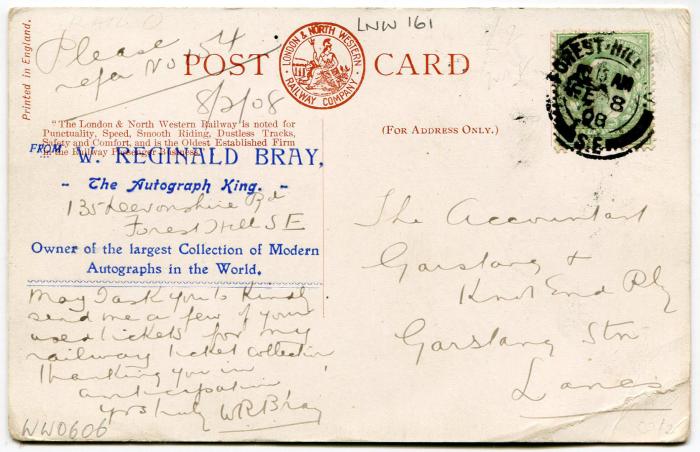 LNW 161
Please
refer No 154
POST CARD
LONDON & NORTH WESTERN
RAILWAY COMPANY
Printed in England.
8/2/08
"The London & North Western Railway is noted for
Punctuality, Speed, Smooth Riding, Dustless Tracks,
Safety and Comfort, and is the Oldest Established Firm
in the Railway Passenger Business."
FROM W. REGINALD BRAY,
- The Autograph King. -
135 Devonshire Rd
Forest Hill S E
Owner of the largest Collection of Modern
Autographs in the World.
May I ask you to kindly
send me a few of your
used tickets for my
railway ticket collection
Thanking you in
anticipation
yrs truly WRBray
WW0606
(FOR ADDRESS ONLY.)
FOREST-HILL
AM
FE 8
08
S.E.
The Accountant
Garstang &
Knot End Rly
Garstang Stn
Lancs